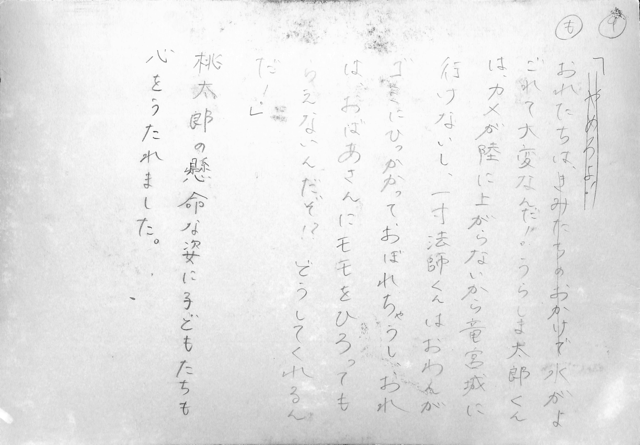 も
「やめろよ!
おれたちはきみたちのおかげで水がよ
ごれて大変なんだ!!。うらしま太郎くん
は、カメが陸に上がらないから竜宮城に
行けないし、一寸法師くんはおわんが
ゴミにひっかかっておぼれちゃうし、おれ
は、おばあさんにモモをひろっても
らえないんだぞ!?どうしてくれるん
だ!」
桃太郎の懸命な姿に子どもたちも
心をうたれました。